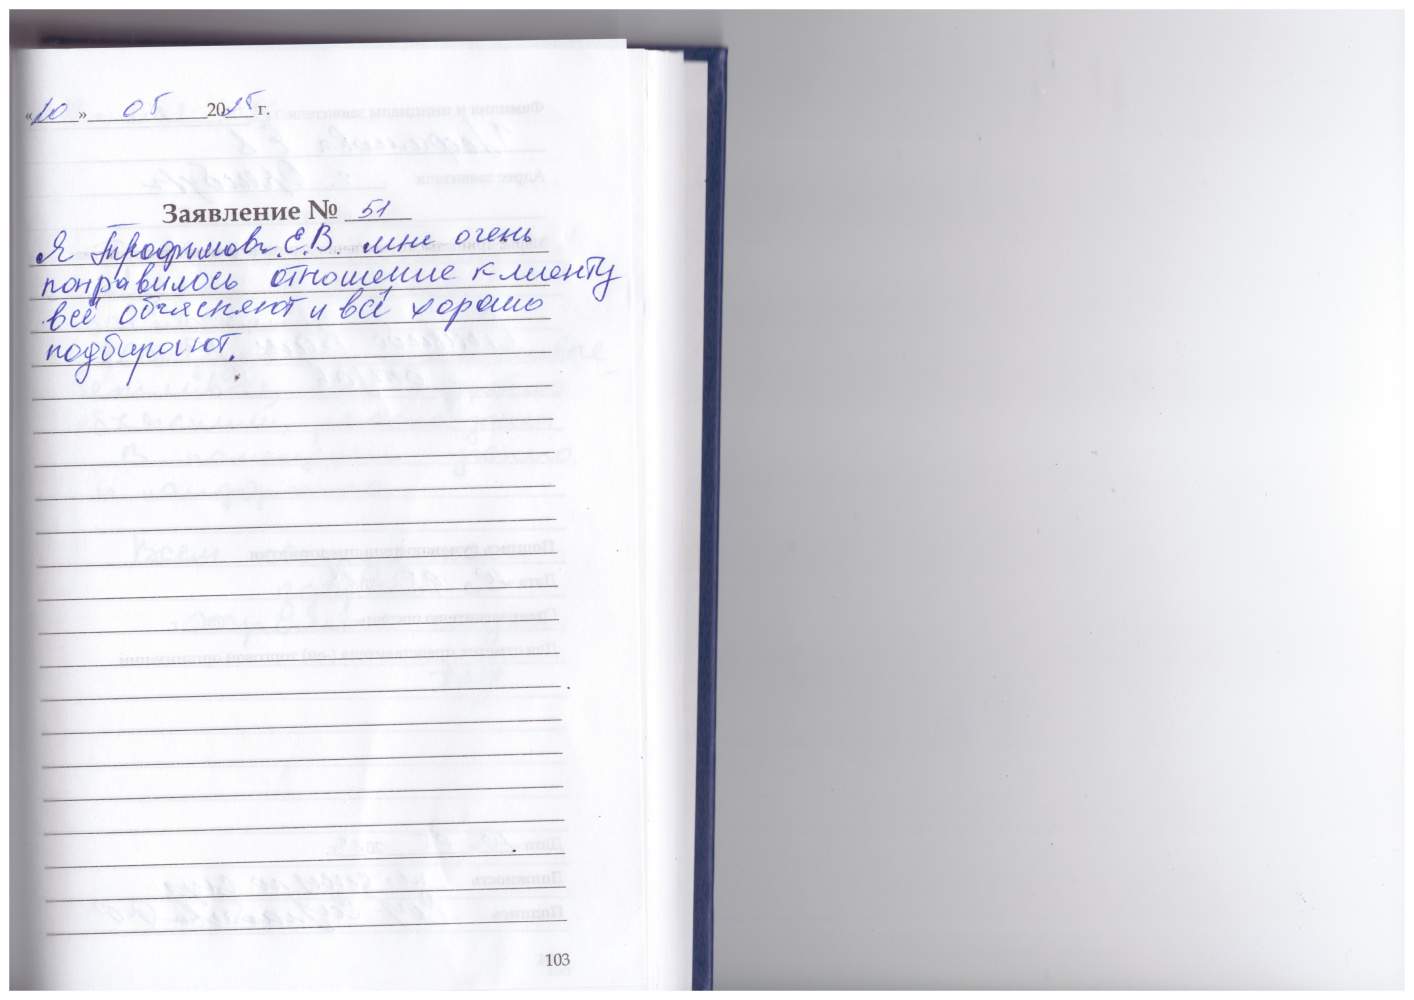 «20» 05 2015 г.
Заявление № 51
Я Трофимова Е.В. мне очень
понравилось отношение клиенту
всё объясняют и всё хорошо
подбирают.
103